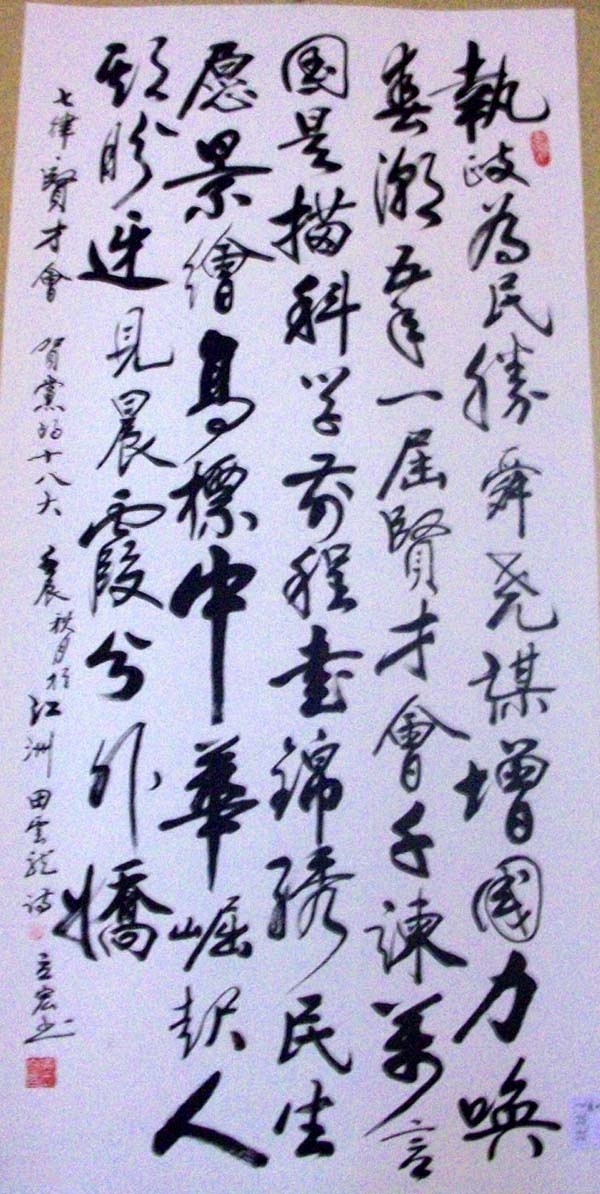 執政為民勝舜尧謀增國力喚
春潮五年一屆賢才會千諫萬言
國是描科学前程書錦绣民生
愿景繪高標中華崛起人
盼迓見晨霞分外嬌
七律·賢才會 賀黨的十八大 壬辰秋月於江洲田雲龍诗 立宏书